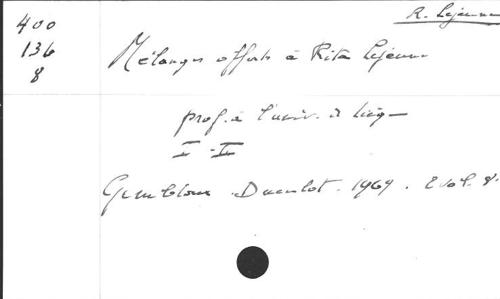 R. Lejeune
400
136
8
Mélanges offerts à Rita Lejeune
prof. à l'univ. de Liège
I - II
Gembloux. Duculot. 1969. 2 vol. 8.